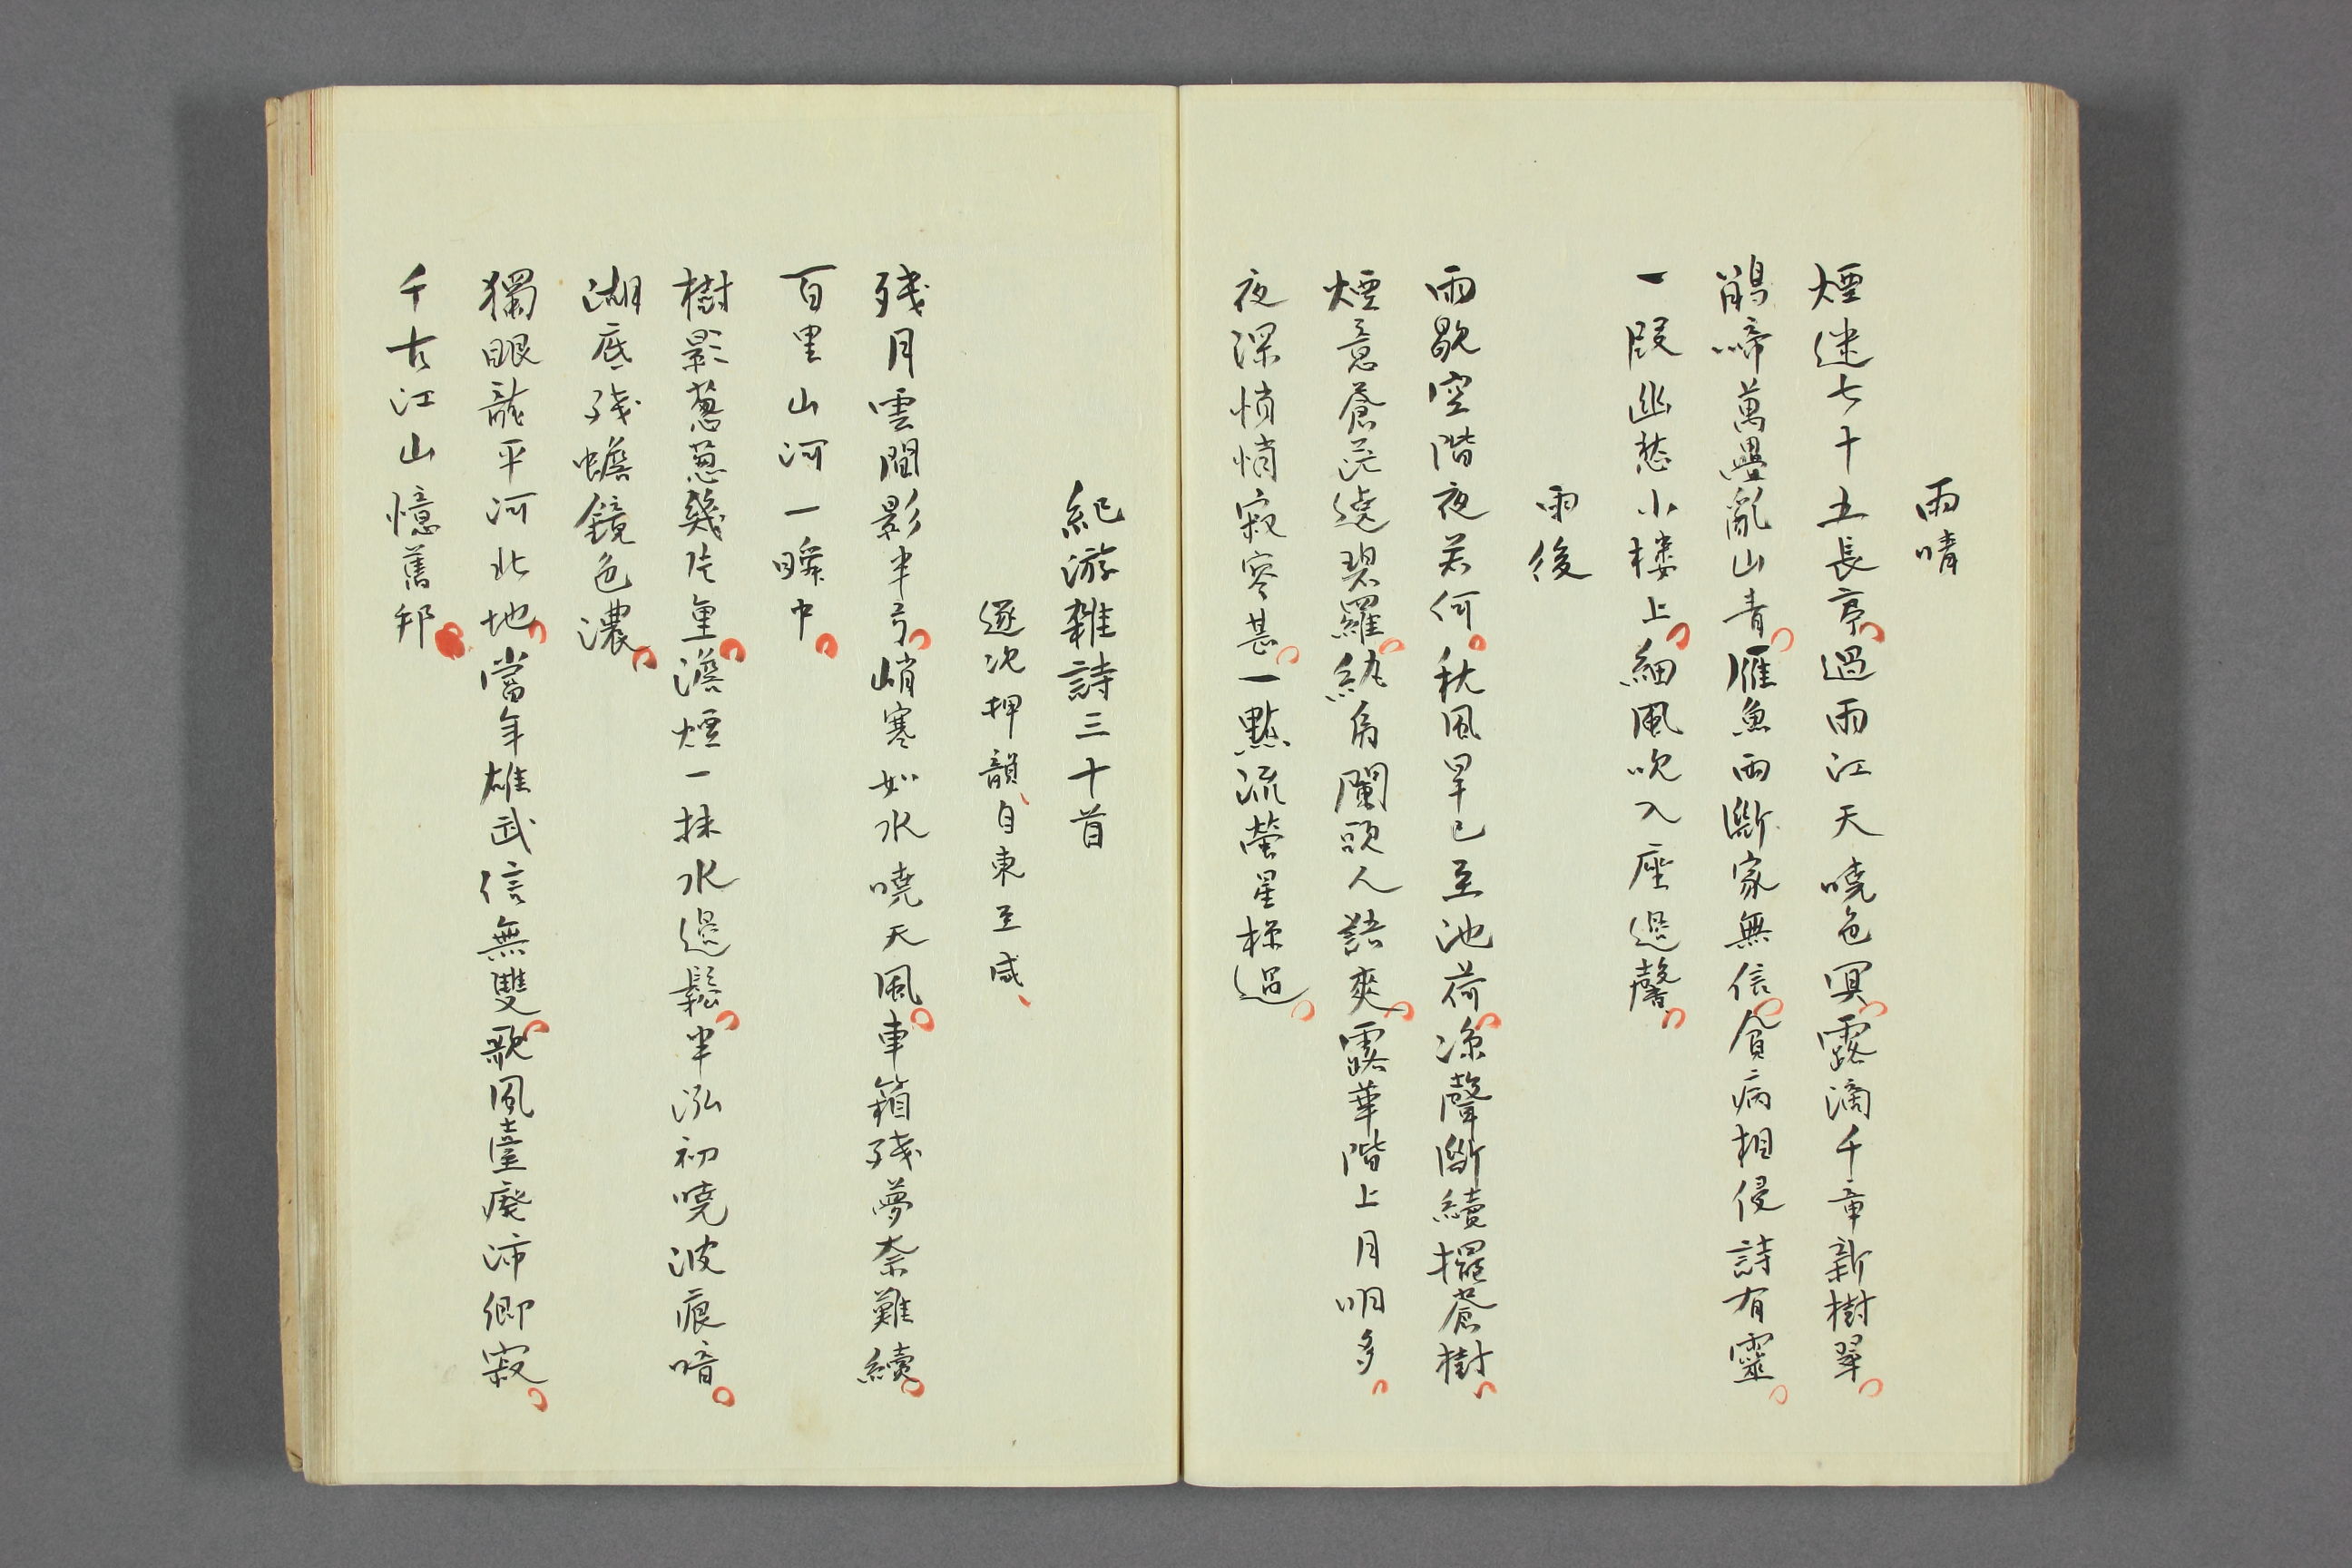 雨晴
煙迷七十五長亭。過雨江天曉色冥。露滴千章新樹翠。
鵑啼萬疊亂山青。雁魚兩斷家無信。貧病相侵詩有靈。
一段幽愁小樓上。細風吹入座邊馨。
雨後
雨歇空階夜若何。秋風早已至池荷。涼聲斷續擺蒼樹。
煙意蒼茫遶碧羅。紈扇闌頭人語爽。露華階上月明多。
夜深悄悄寂寥甚。一點流螢星様過。
紀游雜詩三十首
逐次押韻、自東至咸、
殘月雲間影半弓。峭寒如水曉天風。車箱殘夢奈難續。
百里山河一瞬中。
樹影葱葱幾片重。澹煙一抹水邊鬆。半泓初曉波痕暗。
湖底殘蟾鏡色濃。
獨眼龍平河北地。當年雄武信無雙。歌風臺廢沛鄉寂。
千古江山憶舊邦。